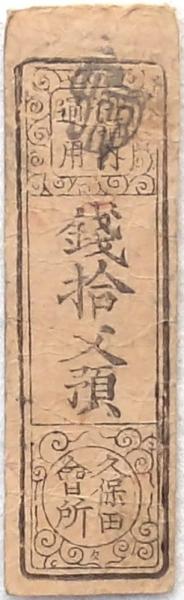 通用
錢拾文預
久保田
會所